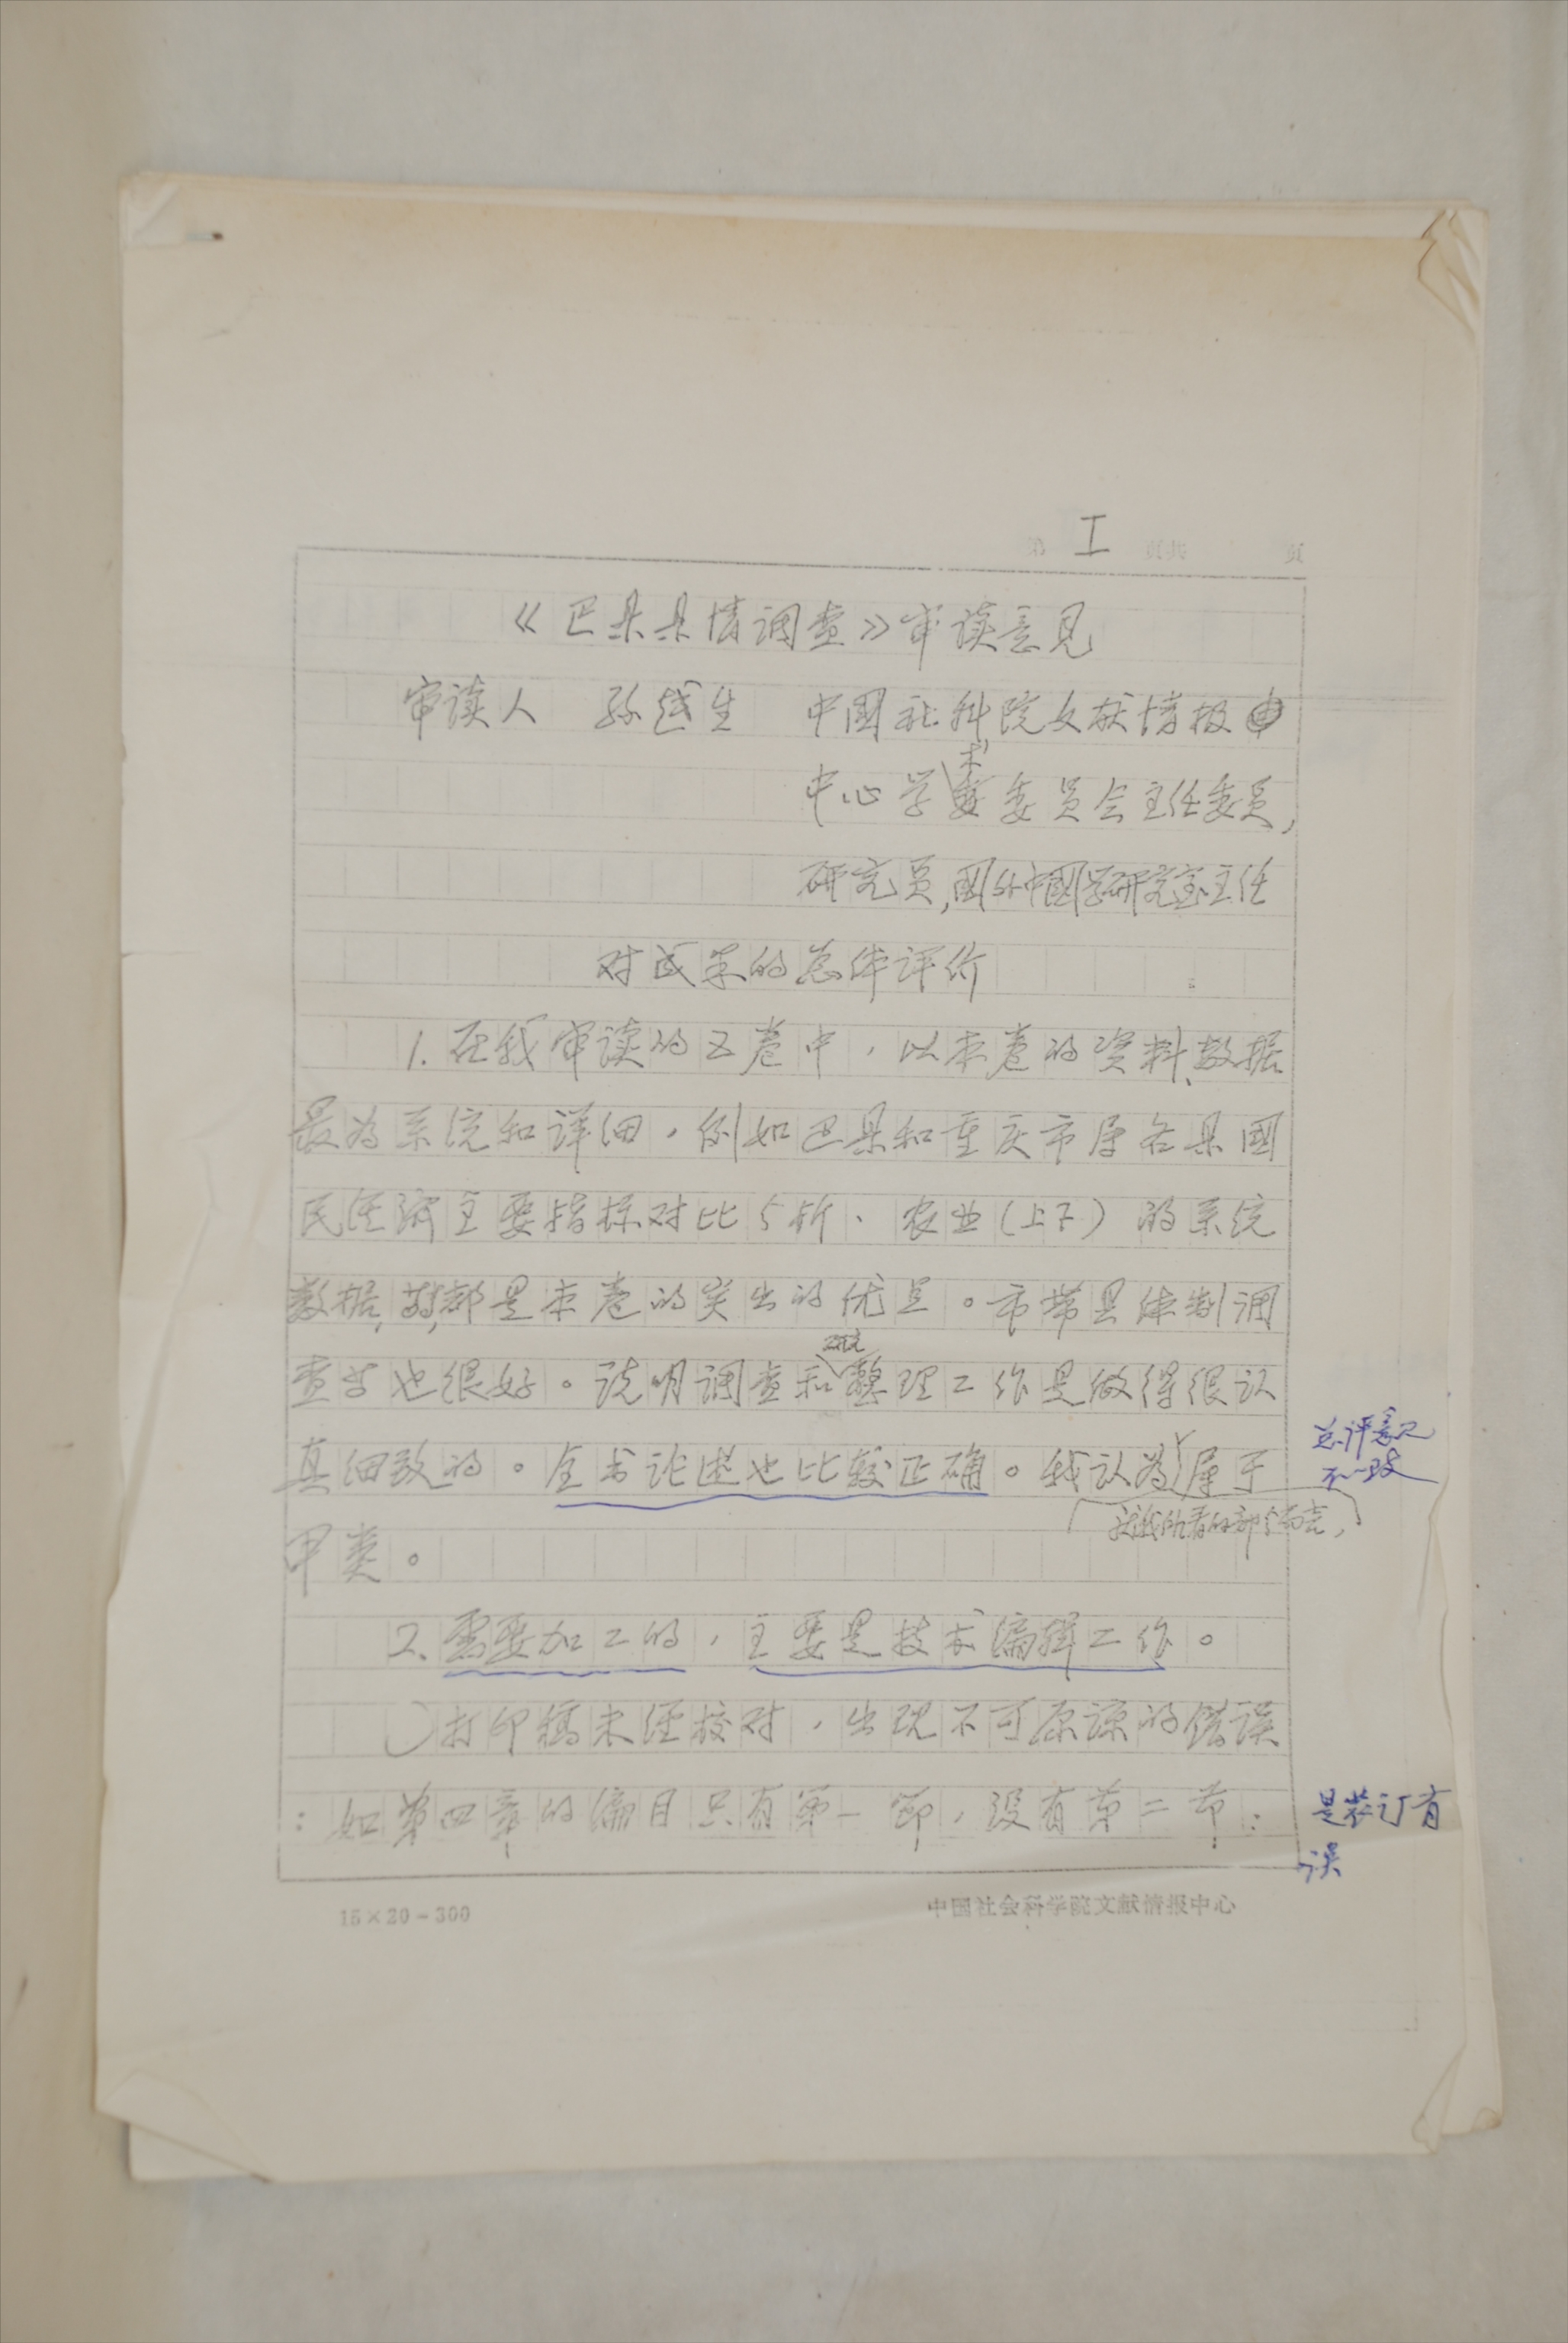 第 I 页共 页
《巴县县情调查》审读意见
审读人 孙越生 中国社科院文献情报
中心学术委员会主任委员,
研究员,国外中国学研究室主任
对成果的总体评价
1.在我审读的五卷中,以本卷的资料、数据
最为系统和详细。例如巴县和重庆市属各县国
民经济主要指标对比分析、农业(上下)的系统
数据,都是本卷的突出的优点。市带县体制调
查等也很好。说明调查和整理工作是做得很认
真细致的。全书论述也比较正确。我认为属于
就我所看的部分而言,
甲类。
总评意见
不一致
2.需要加工的,主要是技术编辑工作。
打印稿未经校对,出现不可原谅的错误
:如第四章的编目只有第一节,没有第二节;
是装订有
误
15×20=300
中国社会科学院文献情报中心